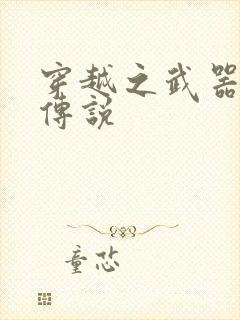 穿越之武器
傳說
童芯